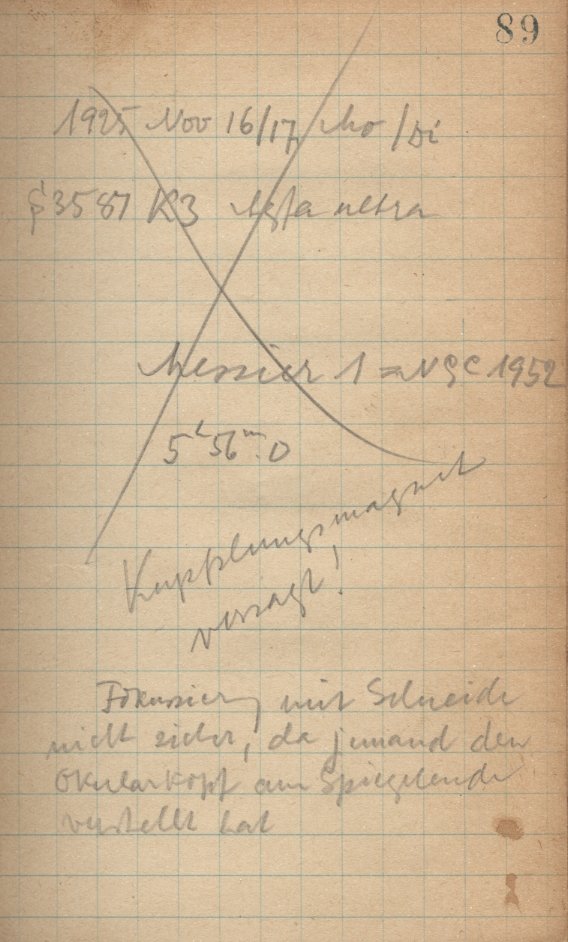 89
1925 Nov 16/17, Mo/Di
3587 K3 Agfa ultra
Messier 1 = NGC 1952
5ʰ56ᵐ.0
Kupplungsmagnet
versagt!
Fokussierg mit Schneide
nicht sicher, da jemand den
Okularkopf am Spiegelende
verstellt hat